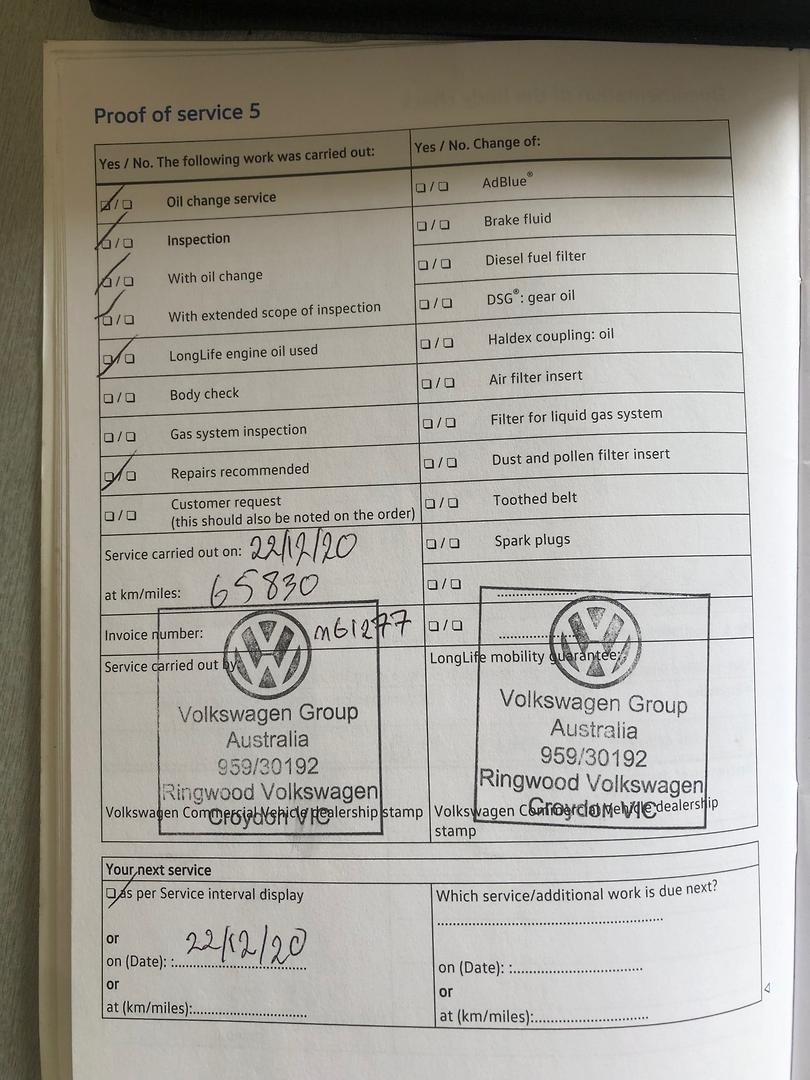 Proof of service 5
Yes / No. The following work was carried out:
Yes / No. Change of:
❏ / ❏ Oil change service
❏ / ❏ AdBlue®
❏ / ❏ Inspection
❏ / ❏ Brake fluid
❏ / ❏ With oil change
❏ / ❏ Diesel fuel filter
❏ / ❏ With extended scope of inspection
❏ / ❏ DSG®: gear oil
❏ / ❏ LongLife engine oil used
❏ / ❏ Haldex coupling: oil
❏ / ❏ Body check
❏ / ❏ Air filter insert
❏ / ❏ Gas system inspection
❏ / ❏ Filter for liquid gas system
❏ / ❏ Repairs recommended
❏ / ❏ Dust and pollen filter insert
❏ / ❏ Customer request
(this should also be noted on the order)
❏ / ❏ Toothed belt
Service carried out on: 22/12/20
❏ / ❏ Spark plugs
at km/miles: 65830
❏ / ❏ ....................
Invoice number: m61277
❏ / ❏ ....................
Service carried out by:
LongLife mobility guarantee:
Volkswagen Group
Australia
959/30192
Ringwood Volkswagen
Croydon VIC
Volkswagen Commercial Vehicle dealership stamp
Volkswagen Group
Australia
959/30192
Ringwood Volkswagen
Croydon VIC
Volkswagen Commercial Vehicle dealership
stamp
Your next service
❏ as per Service interval display
Which service/additional work is due next?
or
on (Date): :22/12/20
on (Date): :....................
or
or
at (km/miles):....................
at (km/miles):....................